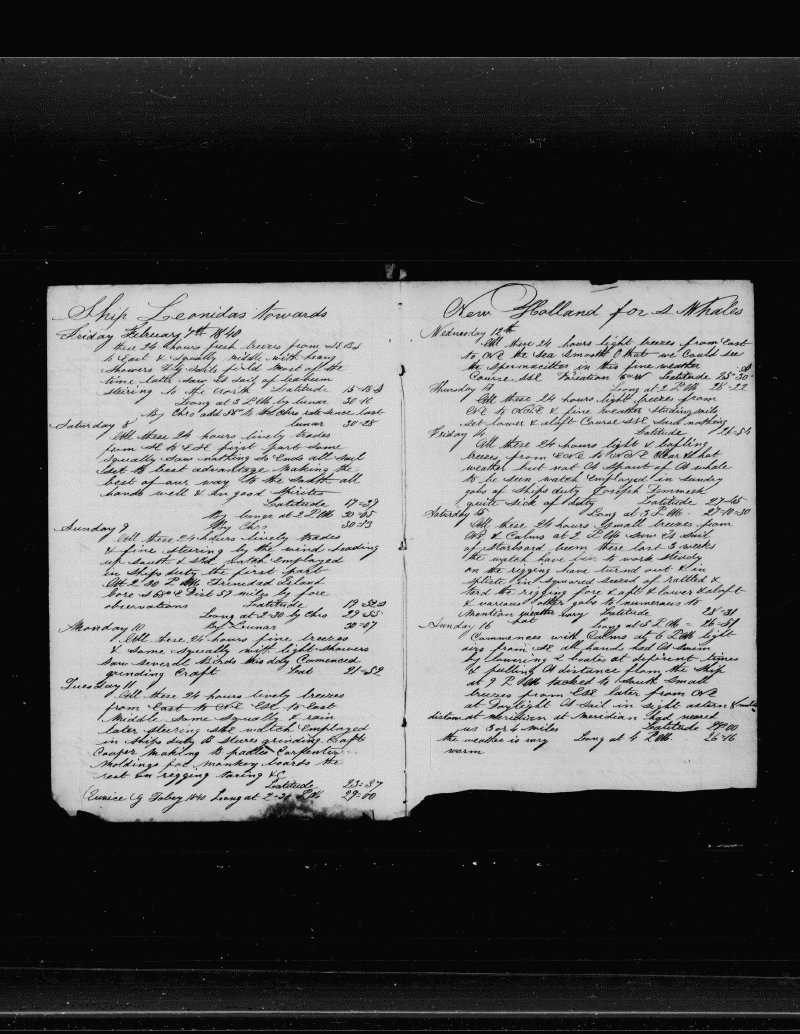 Ship Leonidas towards
Friday February 7th 1840
these 24 hours fresh breezes from SE
to East & Squally middle with heavy
Showers most of the
time latter saw
stering to the North Latitude 15=15 S
Long at 3 PM by lunar 30-10
My Chro
lunar 30-28
Saturday 8
All these 24 hours lively trades
from SE to ESE first part some
Squally Saw nothing So Ends all Sail
Set to best advantage Making the
best of our way to the South all
hands well & in good Spirits
Latitude 17=29
by lunar at 2 PM
By Chro 30=13
Sunday 9
All these 24 hours lively trades
& fine steering by the wind heading
up South & Watch Employed
in Ships duty the first part
At 2 30 P.M. Trinidad Island
bore Dist 59 miles by fore
observations Latitude
Long at 2=30 by Chro 29=55
By Lunar 30=07
Monday 10
All these 24 hours fine breezes
& some Squally with light Showers
Saw Several Birds this day Comenced
grinding Craft Lat 21=52
Tuesday 11
All these 24 hours lively breezes
from East to NE ESE to East
Middle Some Squally & rain
later steering SSE watch Employed
in Ships duty Is Steers grinding Craft
Cooper Making Carpenter
Moldings for Monkey boards the
rest in rigging taring &c
Latitude 23=37
Eunice G Tobey 1840 Long at 2=30 PM 29=00
New Holland for S Whales
Wednesday 12th
All these 24 hours light breezes from East
to NE the Sea Smooth O that we Could see
the Spermacities in this fine weather
Course SSE Latitude 25=30
Thursday 13 Long at 2 PM 28=22
All these 24 hours light breezes from
NE to & fine weather studing sails
set lower & aloft Course SSE Saw nothing
Latitude 26=54
Friday 14
All these 24 hours light & bafling
breezes from ENE to Clear & hot
weather but not A Spout of A whale
to be seen watch Employed in sundry
gobs of Ships duty Joseph Dimmeck
quite Sick of Latitude 27=45
Saturday 15 Long at 3 PM = 27=10=30
All these 24 hours Small breezes from
NE & Calms at 2 PM Saw A Sail
of Starboard beem these last 3 weeks
the watch have to work steady
on the rigging have turned out & in
Splicte in Squared Seized of ratlled &
tard the rigging fore & aft & lower & aloft
& various other gobs to numerous to
Mention weather vary hot Latitude 28=31
Sunday 16 Long at 5 PM = 26=51
Commences with Calms at 6 PM light
airs from SE all hands had A Swim
by lowering 2 boats at different times
& pulling A distance from the Ship
at 9 PM tacked to South Small
breezes from ESE later from NE
at Daylight A Sail in Sight astern
distance at Meridian at Meridian had neared
us 3 or 4 miles Latitude 29=00
the weather is vary Long at 4 PM 26=16
warm